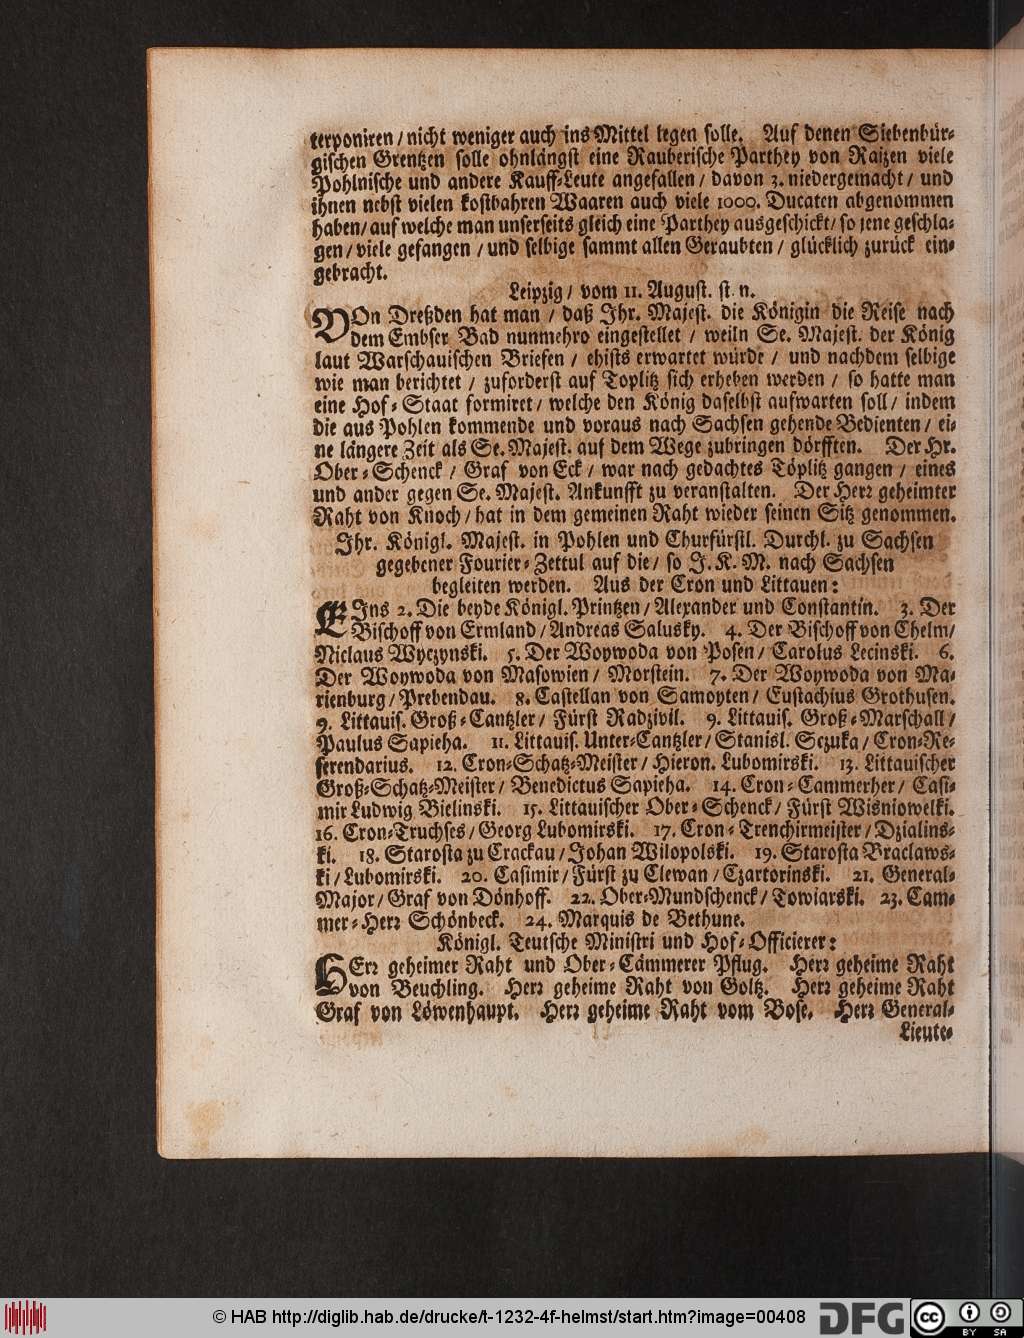 terponiren / nicht weniger auch ins Mittel legen solle. Auf denen Siebenbür-
gischen Grentzen solle ohnlängst eine Rauberische Parthey von Raitzen viele
Pohlnische und andere Kauff-Leute angefallen / davon 3. niedergemacht / und
ihnen nebst vielen kostbahren Waaren auch viele 1000. Ducaten abgenommen
haben / auf welche man unserseits gleich eine Parthey ausgeschickt / so jene geschla-
gen / viele gefangen / und selbige sammt allen Geraubten / glücklich zurück ein-
gebracht.
Leipzig / vom 11. August. st. n.
VOn Dreßden hat man / daß Ihr. Majest. die Königin die Reise nach
dem Embser Bad nunmehro eingestellet / weiln Se. Majest. der König
laut Warschauischen Briefen / ehists erwartet würde / und nachdem selbige
wie man berichtet / zuforderst auf Toplitz sich erheben werden / so hatte man
eine Hof-Staat formiret / welche den König daselbst aufwarten soll / indem
die aus Pohlen kommende und voraus nach Sachsen gehende Bedienten / ei-
ne längere Zeit als Se. Majest. auf dem Wege zubringen dörfften. Der Hr.
Ober-Schenck / Graf von Eck / war nach gedachtes Töplitz gangen / eines
und ander gegen Se. Majest. Ankunfft zu veranstalten. Der Herr geheimter
Raht von Knoch / hat in dem gemeinen Raht wieder seinen Sitz genommen.
Ihr. Königl. Majest. in Pohlen und Churfürstl. Durchl. zu Sachsen
gegebener Fourier-Zettul auf die / so J. K. M. nach Sachsen
begleiten werden. Aus der Cron und Littauen:
EIns 2. Die beyde Königl. Printzen / Alexander und Constantin. 3. Der
Bischoff von Ermland / Andreas Salusky. 4. Der Bischoff von Chelm /
Niclaus Wyczynski. 5. Der Woywoda von Posen / Carolus Lecinski. 6.
Der Woywoda von Masowien / Morstein. 7. Der Woywoda von Ma-
rienburg / Prebendau. 8. Castellan von Samoyten / Eustachius Grothusen.
9. Littauis. Groß-Cantzler / Fürst Radzivil. 9. Littauis. Groß-Marschall /
Paulus Sapieha. 11. Littauis. Unter-Cantzler / Stanisl. Sczuka / Cron-Re-
ferendarius. 12. Cron-Schatz-Meister / Hieron. Lubomirski. 13. Littauischer
Groß-Schatz-Meister / Benedictus Sapieha. 14. Cron-Cammerher / Casi-
mir Ludwig Bielinski. 15. Littauischer Ober-Schenck / Fürst Wisniowelki.
16. Cron-Truchses / Georg Lubomirski. 17. Cron-Trenchirmeister / Dzialins-
ki. 18. Starosta zu Crackau / Johan Wilopolski. 19. Starosta Braclaws-
ki / Lubomirski. 20. Casimir / Fürst zu Clewan / Czartorinski. 21. General-
Major / Graf von Dönhoff. 22. Ober-Mundschenck / Towiarski. 23. Cam-
mer-Herr Schönbeck. 24. Marquis de Bethune.
Königl. Teutsche Ministri und Hof-Officierer:
HErr geheimer Raht und Ober-Cämmerer Pflug. Herr geheime Raht
von Beuchling. Herr geheime Raht von Goltz. Herr geheime Raht
Graf von Löwenhaupt. Herr geheime Raht vom Bose. Herr General-
Lieute-
© HAB http://diglib.hab.de/drucke/t-1232-4f-helmst/start.htm?image=00408
DFG
cc BY SA